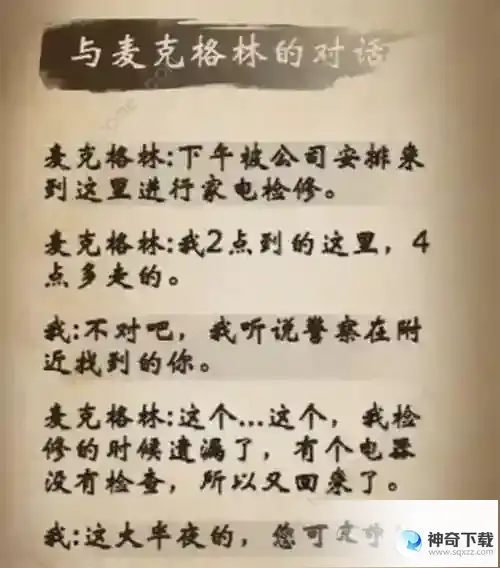 与麦克格林的对话
麦克格林:下午被公司安排来
到这里进行家电检修。
麦克格林:我2点到的这里，4
点多走的。
我:不对吧，我听说警察在附
近找到的你。
麦克格林:这个...这个，我检
修的时候遗漏了，有个电器
没有检查，所以又回来了。
我:这大半夜的，您可
神奇下载
www.sqxzz.com